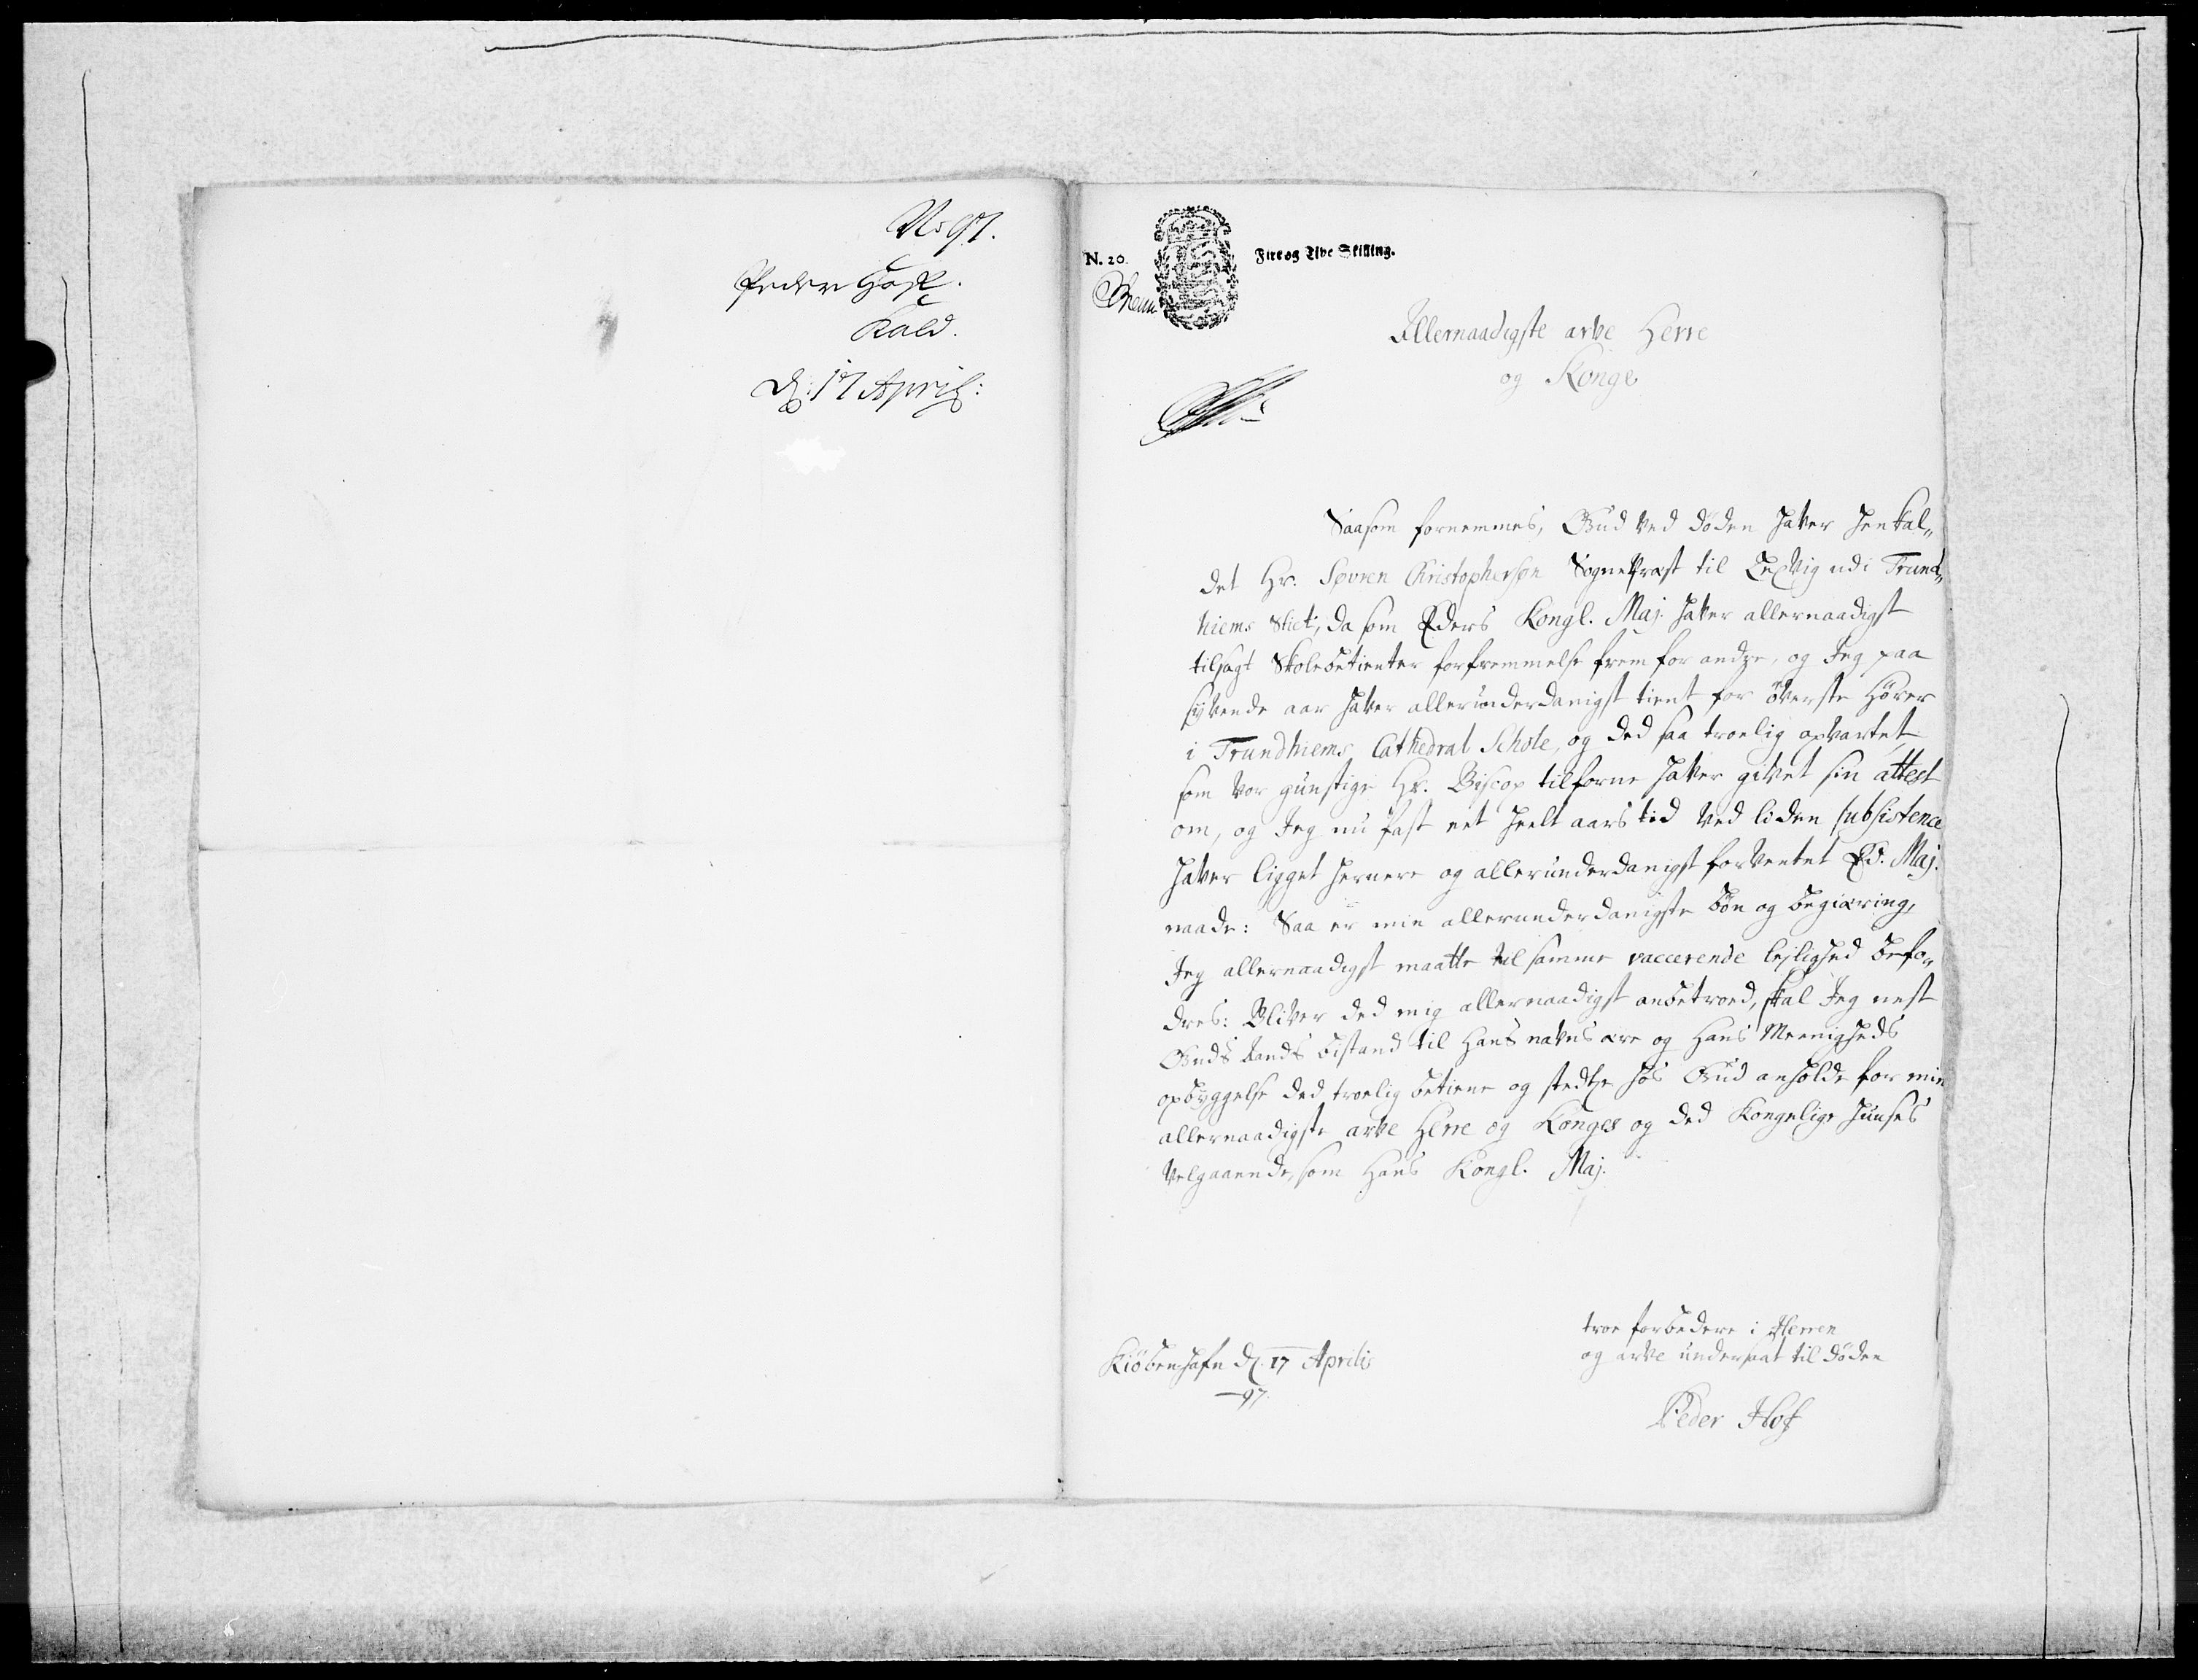 No 97.
Peder Hoff.
Kald.
d: 17 April:
N. 20.
Fire og Tive Skilling.
Allernaadigste arve Herre
og Konge
Saasom fornemmes, Gud ved døden haver henkal„
det Hr. Søvren Christophersøn Sognepræst til Lexvig udi Trund„
hiems Stict, da som Eders Kongl. Maj. haver allernaadigst
tilsagt Skolebetienter forfremmelse frem for andre, og Jeg paa
syvende aar haver allerunderdanigst tient for överste Hörer
i Trundhiems Cathedral Schole, og ded saa troelig opvartet
som vor gunstige Hr. Biscop tilforne haver givet sin attest
om, og Jeg nu fast eet heelt aars tid ved liden subsistence
haver ligget hernere og allerunderdanigst forventet Ed. Maj.
naade: Saa er min allerunderdanigste bön og begiæring,
Jeg allernaadigst maatte til samme vaccerende lejlighed befo„
dres: Bliver ded mig allernaadigst anbetroed, skal Jeg nest
Guds Aands bistand til Hans navns ære og Hans Meenigheds
opbyggelse ded troelig betiene og stedtze hos Gud anholde for min
allernaadigste arve Herre og Konges og ded Kongelige Huuses
velgaaende, som Hans Kongl. Maj.
troe forbedere i Herren
og arve undersaat til döden
Kiöbenhafn d. 17 Aprilis
97
Peder Hof